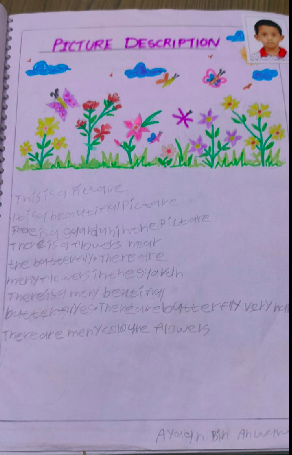 PICTURE DESCRIPTION
This is a Picture
is a beautiful Picture
is a gardun in the Picture
There is a flowers near
the butterfly. There are
meny flowers in the garden
There is meny
butterflyes. There are butterfly very
There are meny flowers
Ayaan Bin